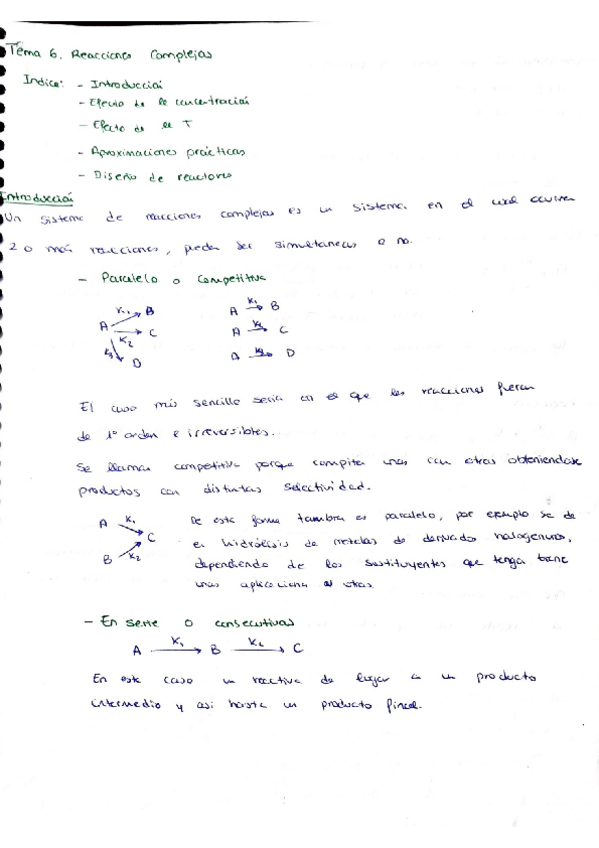 Tema 6. Reacciones Complejas
Indice: - Introducción
- Efecto de la concentración
- Efecto de la T
- Aproximaciones prácticas
- Diseño de reactores
Introducción
Un sistema de reacciones complejas es un sistema en el cual ocurren
2 o más reacciones, pueden ser simultaneas o no.
- Paralelo o competitiva
A K1 B
A K2 C
K3 D
A K1 B
A K2 C
A K3 D
El caso más sencillo sería en el que las reacciones fueran
de 1º orden e irreversibles.
Se llaman competitiva porque compiten unas con otras obteniendose
productos con distintas selectividad.
A K1 C
B K2
De esta forma tambien es paralelo, por ejemplo se da
en hidrólisis de mezclas de derivados halogenuros,
dependiendo de los sustituyentes que tenga tiene
unas aplicaciones u otras.
- En serie o consecutivas
A K1 B K2 C
En este caso un reactivo da lugar a un producto
intermedio y así hasta un producto final.